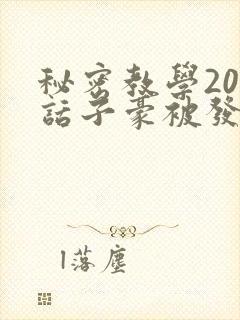 秘密教學20
話子豪被發
l落塵